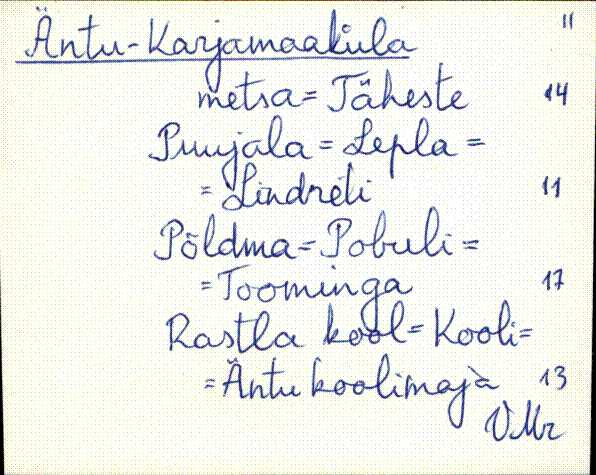 Äntu-Karjamaaküla 11
metsa = Täheste 14
Puujala = Lepla =
= Lindreti 11
Põldma = Pobuli =
= Toominga 17
Rastla kool = Kooli =
= Äntu koolimaja 13
VMr